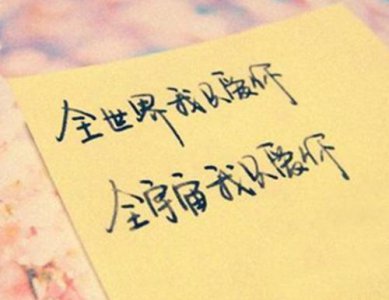 全世界我只爱你
全宇宙我只爱你